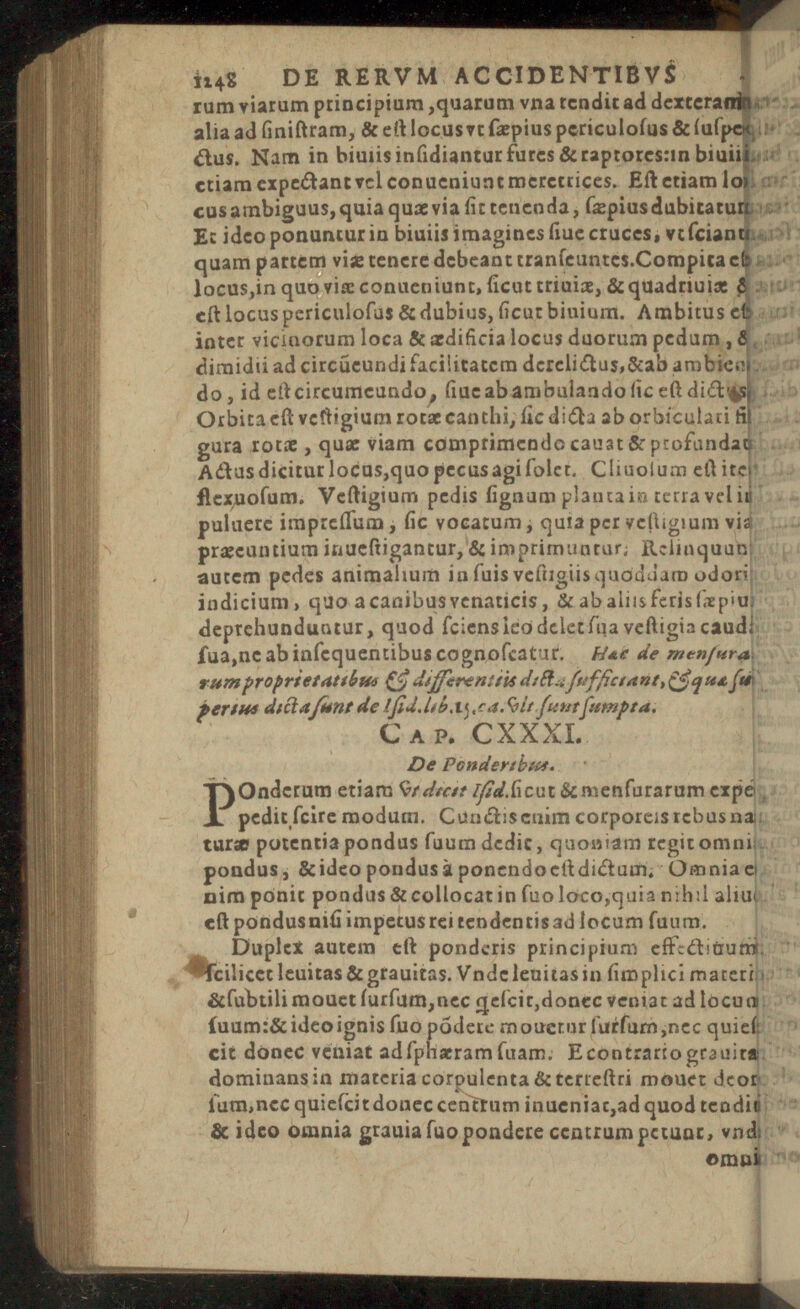 1148 DE RERVM ACCIDENTIBVS
rum viarum principium ,quarum vna tendit ad dexteram
alia ad ſiniſtram, & eſt locus vt ſæpius periculoſus & ſuſpe
ctus. Nam in biuiis inſidiantur fures & raptores:in biuii
etiam expectant vel conueniunt meretrices. Eſt etiam lo
cus ambiguus, quia quæ via ſit tenenda, ſæpius dubitatur
Et ideo ponuntur in biuiis imagines ſiue cruces, vt ſciant
quam partem viæ tenere debeant tranſeuntes.Compita eſt
locus,in quo viæ conueniunt, ſicut triuiæ, & quadriuiæ &
eſt locus periculoſus & dubius, ſicut biuium. Ambitus eſt
inter vicinorum loca & ædificia locus duorum pedum , &
dimidii ad circūeundi facilitatem derelictus,&ab ambien
do , id eſt circumeundo, ſiue ab ambulando ſic eſt dictus
Orbita eſt veſtigium rotæ canthi, ſic dicta ab orbiculati fi
gura rotæ , quæ viam comprimendo cauat & profundat
Actus dicitur locus,quo pecus agi ſolet. Cliuoſum eſt ite
flexuoſum. Veſtigium pedis ſignum planta in terra vel i
puluere impreſſum , ſic vocatum, quia per veſtigium via
præeuntium inueſtigantur, & imprimuntur; Relinquun
autem pedes animalium in ſuis veſtigiis quoddam odori
indicium, quo a canibus venaticis, & ab aliis feris ſæpiu
deprehunduntur, quod ſciens leo delet ſua veſtigia cauda
ſua,ne ab inſequentibus cognoſcatur. Hæc de menſura
rum proprietatibus & differentiis dicta ſufficiant, & quæ ſu
perius dicta ſunt de Iſid.lib.15.ca.vlt.ſunt ſumpta.
CAP. CXXXI.
De Ponderibus.
POnderum etiam vt dicit Iſid.ſicut & menſurarum expe
pedit ſcire modum. Cunctis enim corporeis rebus na
turæ potentia pondus ſuum dedit, quoniam regit omni
pondus, & ideo pondus à ponendo eſt dictum. Omnia e
nim ponit pondus & collocat in ſuo loco,quia nihil aliu
eſt pondus niſi impetus rei tendentis ad locum ſuum.
Duplex autem eſt ponderis principium effectiuum
ſcilicet leuitas & grauitas. Vnde leuitas in ſimplici materi
&ſubtili mouet ſurſum,nec q̄eſcit,donec veniat ad locum
ſuum:& ideo ignis ſuo pōdere mouetur ſurſum,nec quieſ
cit donec veniat ad ſphæram ſuam. E contrario grauita
dominans in materia corpulenta & terreſtri mouet deor
ſum,nec quieſcit donec centrum inueniat,ad quod tendit
& ideo omnia grauia ſuo pondere centrum petunt, vnd
omni